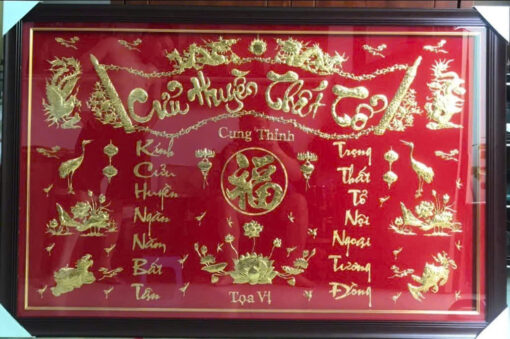 Cửu Huyền Thất Tổ
Cung Thỉnh
Kính
Cửu
Huyền
Ngàn
Năm
Bất
Tận
福
Trọng
Thất
Tổ
Nội
Ngoại
Tương
Đồng
Tọa Vị